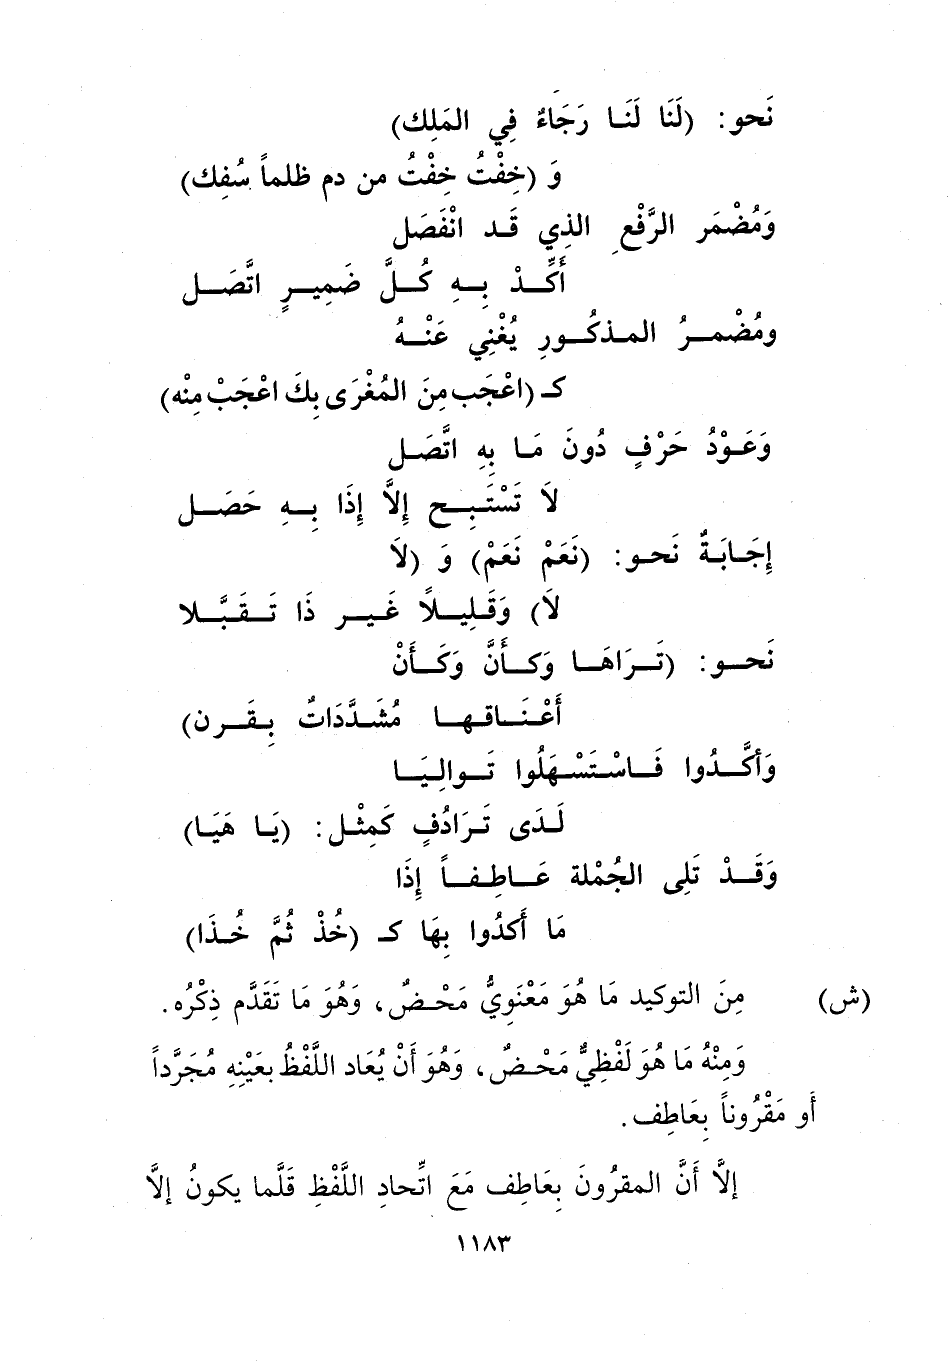 نَحو: (لَنَا لَنَـا رَجَاءٌ فِي المَلِك)
وَ (خِفْتُ خِفْتُ من دم ظلماً سُفِك)
وَمُضْمَر الرَّفْعِ الذِي قَـد انْفَصَل
أَكِّـدْ بِـهِ كُـلَّ ضَمِيـرٍ اتَّصَـل
ومُضْمـرُ المـذكُـورِ يُغْنِي عَنْـهُ
كـ (اعْجَب مِنَ المُغْرَى بِكَ اعْجَبْ مِنْه)
وَعَـوْدُ حَرْفٍ دُونَ مَـا بِهِ اتَّصَـل
لَا تَسْتَبِـح إِلَّا إِذَا بِـهِ حَصَـل
إِجَـابَـةٌ نَحـو: (نَعَمْ نَعَمْ) وَ (لَا
لَا) وَقَـلِيـلاً غَـيـر ذَا تَـقَـبَّـلا
نَحـو: (تَـرَاهَـا وَكـأَنَّ وَكَـأَنْ
أَعْـنَـاقـهـا مُشَـدَّدَاتٌ بِـقَـرن)
وَأكَّـدُوا فَـاسْتَسْهَلُوا تَـوالِيَـا
لَـدَى تَـرَادُفٍ كَمِثْـل: (يَـا هَيَـا)
وَقَـدْ تَلِى الجُمْلة عَـاطِفـاً إِذَا
مَا أَكدُوا بِهَا كـ (خُذْ ثُمَّ خُـذَا)
(ش) مِنَ التوكيد مَا هُوَ مَعْنَوِيٌّ مَحْـضٌ، وَهُوَ مَا تَقَدَّم ذِكْرُه.
وَمِنْهُ مَا هُوَ لَفْظِيٌّ مَحْـضٌ، وَهُوَ أَنْ يُعَاد اللَّفْظُ بعَيْنِهِ مُجَرَّداً
أَو مَقْرُوناً بِعَاطِف.
إلَّا أَنَّ المقرُونَ بِعَاطِف مَعَ اتِّحادِ اللَّفْظِ قَلَّما يكونُ إلَّا
١١٨٣